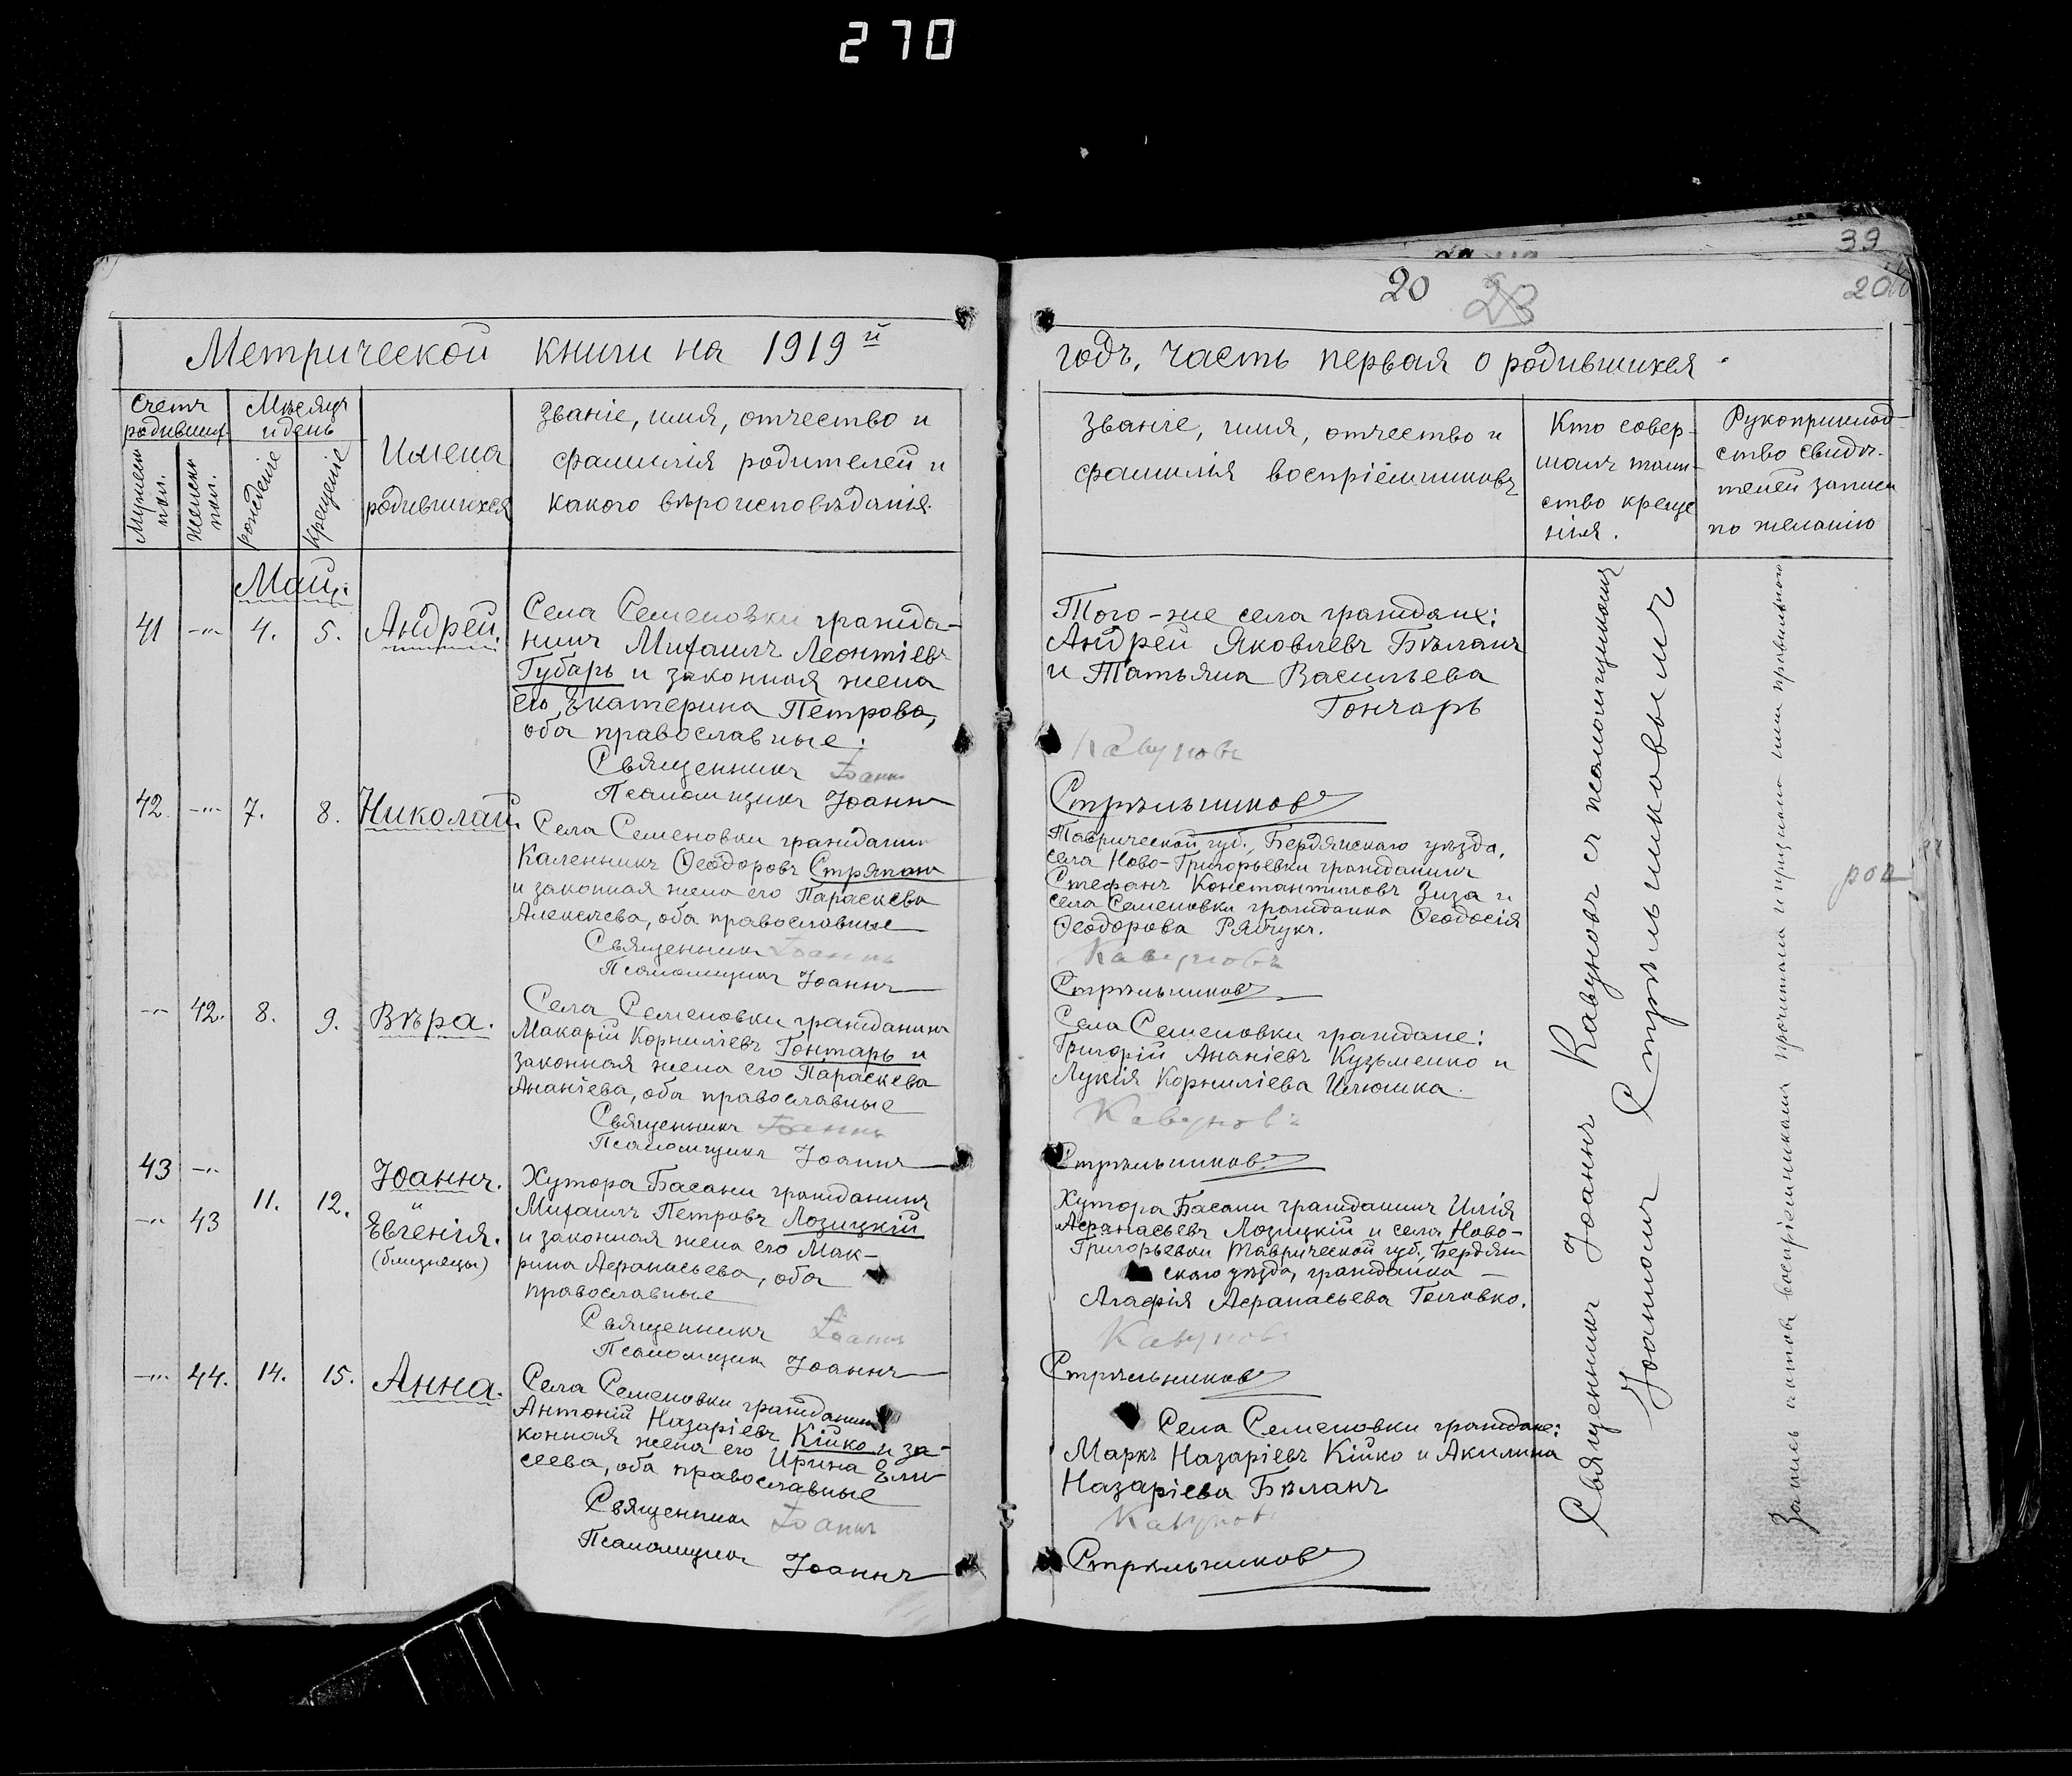 270
39
20 23
20
Метрической книги на 1919й
годъ, часть первая о родившихся.
Счетъ родившихъ.
Мужеск. пол.
Женск. пол.
Мѣсяцъ и день
рожденіе
крещеніе
Имена
родившихся
Званіе, имя, отчество и
фамилія родителей и
какого вѣроисповѣданія.
Званіе, имя, отчество и
фамилія воспріемниковъ
Кто совер-
шалъ таин-
ство креще
нія.
Рукоприклад-
ство свидѣ-
телей записи
по желанію
Май.
41 -"- 4. 5. Андрей.
Села Семеновки гражда-
нинъ Михаилъ Леонтіевъ
Губарь и законная жена
его Екатерина Петрова,
оба православные.
Священникъ Іоаннъ
Псаломщикъ Іоаннъ
Того-же села граждане:
Андрей Яковлевъ Бѣланъ
и Татьяна Васильева
Гончарь
Кавуновъ
Стрѣльниковъ
42. -"- 7. 8. Николай.
Села Семеновки гражданинъ
Каленникъ Ѳеодоровъ Стряпанъ
и законная жена его Параскева
Алексѣева, оба православные
Священникъ Іоаннъ
Псаломщикъ Іоаннъ
Таврической губ., Бердянскаго уѣзда,
села Ново-Григорьевки гражданинъ
Стефанъ Константиновъ Зиза и
села Семеновки гражданка Ѳеодосія
Ѳеодорова Рябчукъ.
Кавуновъ
Стрѣльниковъ
-"- 42. 8. 9. Вѣра.
Села Семеновки гражданинъ
Макарій Корниліевъ Гонтарь и
законная жена его Параскева
Ананіева, оба православные
Священникъ Іоаннъ
Псаломщикъ Іоаннъ
Села Семеновки граждане:
Григорій Ананіевъ Кузьменко и
Лукія Корниліева Илюшка.
Кавуновъ
Стрѣльниковъ
43 -"- Іоаннъ.
и
11. 12.
-"- 43 Евгенія.
(близнецы)
Хутора Басани гражданинъ
Михаилъ Петровъ Лозицкій
и законная жена его Мак-
рина Аѳанасьева, оба
православные
Священникъ Іоаннъ
Псаломщикъ Іоаннъ
Хутора Басани гражданинъ Илія
Аѳанасьевъ Лозицкій и села Ново-
Григорьевки Таврической губ., Бердян-
скаго уѣзда, гражданка
Агафія Аѳанасьева Головко.
Кавуновъ
Стрѣльниковъ
-"- 44. 14. 15. Анна.
Села Семеновки гражданинъ
Антоній Назаріевъ Кійко и за-
конная жена его Ирина Ели-
сеева, оба православные
Священникъ Іоаннъ
Псаломщикъ Іоаннъ
Села Семеновки граждане:
Маркъ Назаріевъ Кійко и Акилина
Назаріева Бѣланъ
Кавуновъ
Стрѣльниковъ
Священникъ Іоаннъ Кавуновъ съ псаломщикомъ
Іоанномъ Стрѣльниковымъ
Запись актовъ воспріемниками прочитана и признана ими правильною